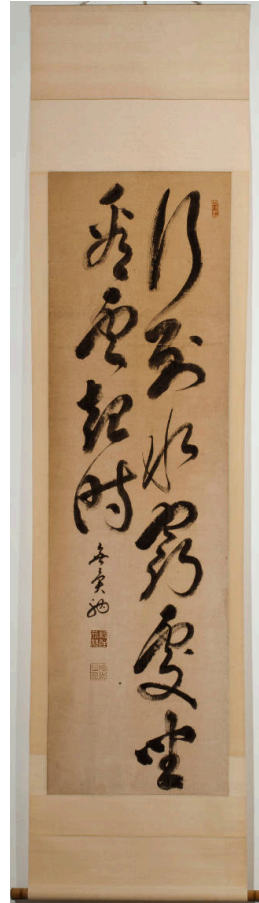 行到水窮處坐
看雲起時